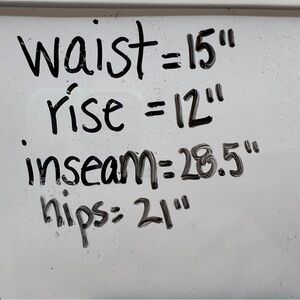 waist = 15"
rise = 12"
inseam = 28.5"
hips = 21"